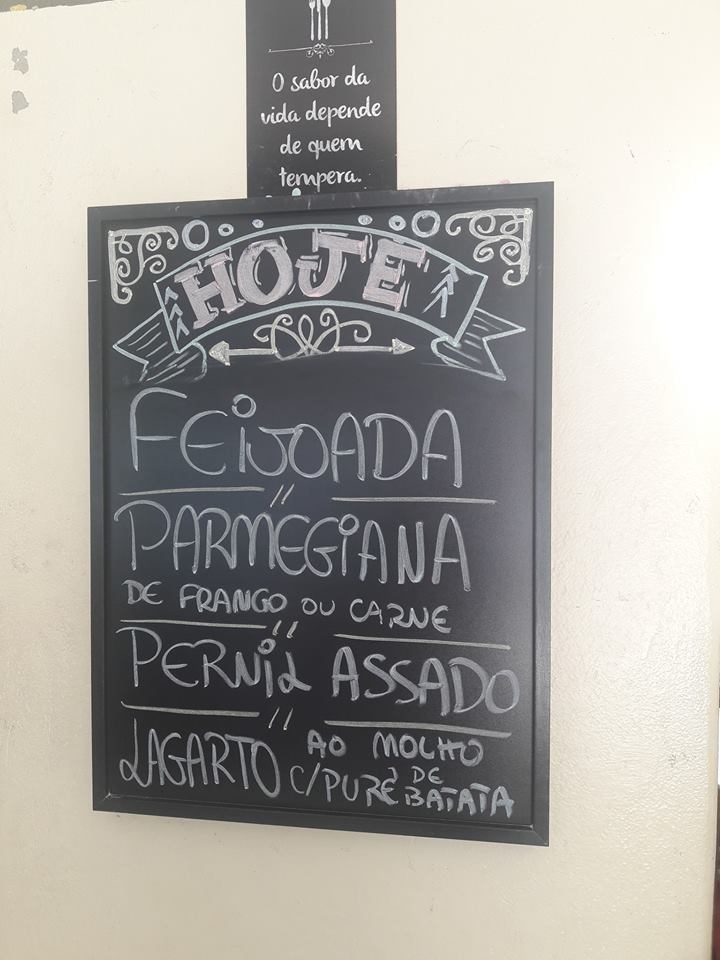 O sabor da
vida depende
de quem
tempera.
HOJE
FEIJOADA
PARMEGIANA
DE FRANGO OU CARNE
PERNIL ASSADO
LAGARTO AO MOLHO
C/PURÊ DE
BATATA